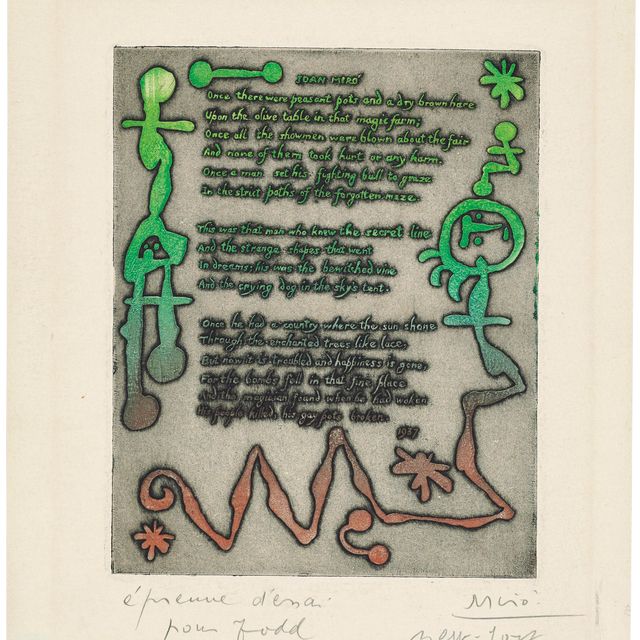 JOAN MIRÓ
Once there were peasant pots and a dry brown hare
Upon the olive table in that magic farm;
Once all the showmen were blown about the fair
And none of them took hurt or any harm.
Once a man set his fighting bull to graze
In the strict paths of the forgotten maze.
This was that man who knew the secret line
And the strange shapes that went
In dreams; his was the bewitched vine
And the crying dog in the sky's tent.
Once he had a country where the sun shone
Through the enchanted trees like lace,
But now it is troubled and happiness is gone,
For the bombs fell in that fine place
And the magician found when he had woken
His people killed, his gay pots broken.
1937
épreuve d'essai
pour Todd
Miró.